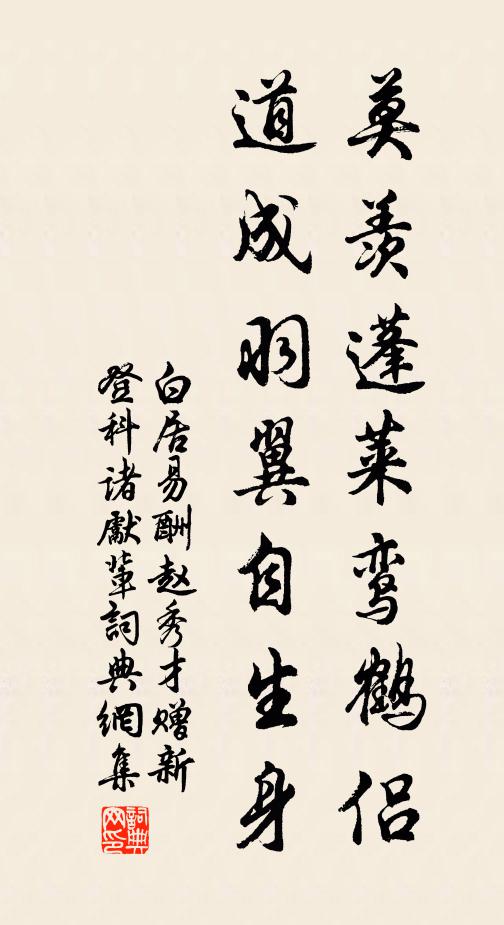 莫羡蓬莱鸾鹤侣
道成羽翼自生身
白居易酬赵秀才赠新
登科诸獻辈詞典網集
詞典网印